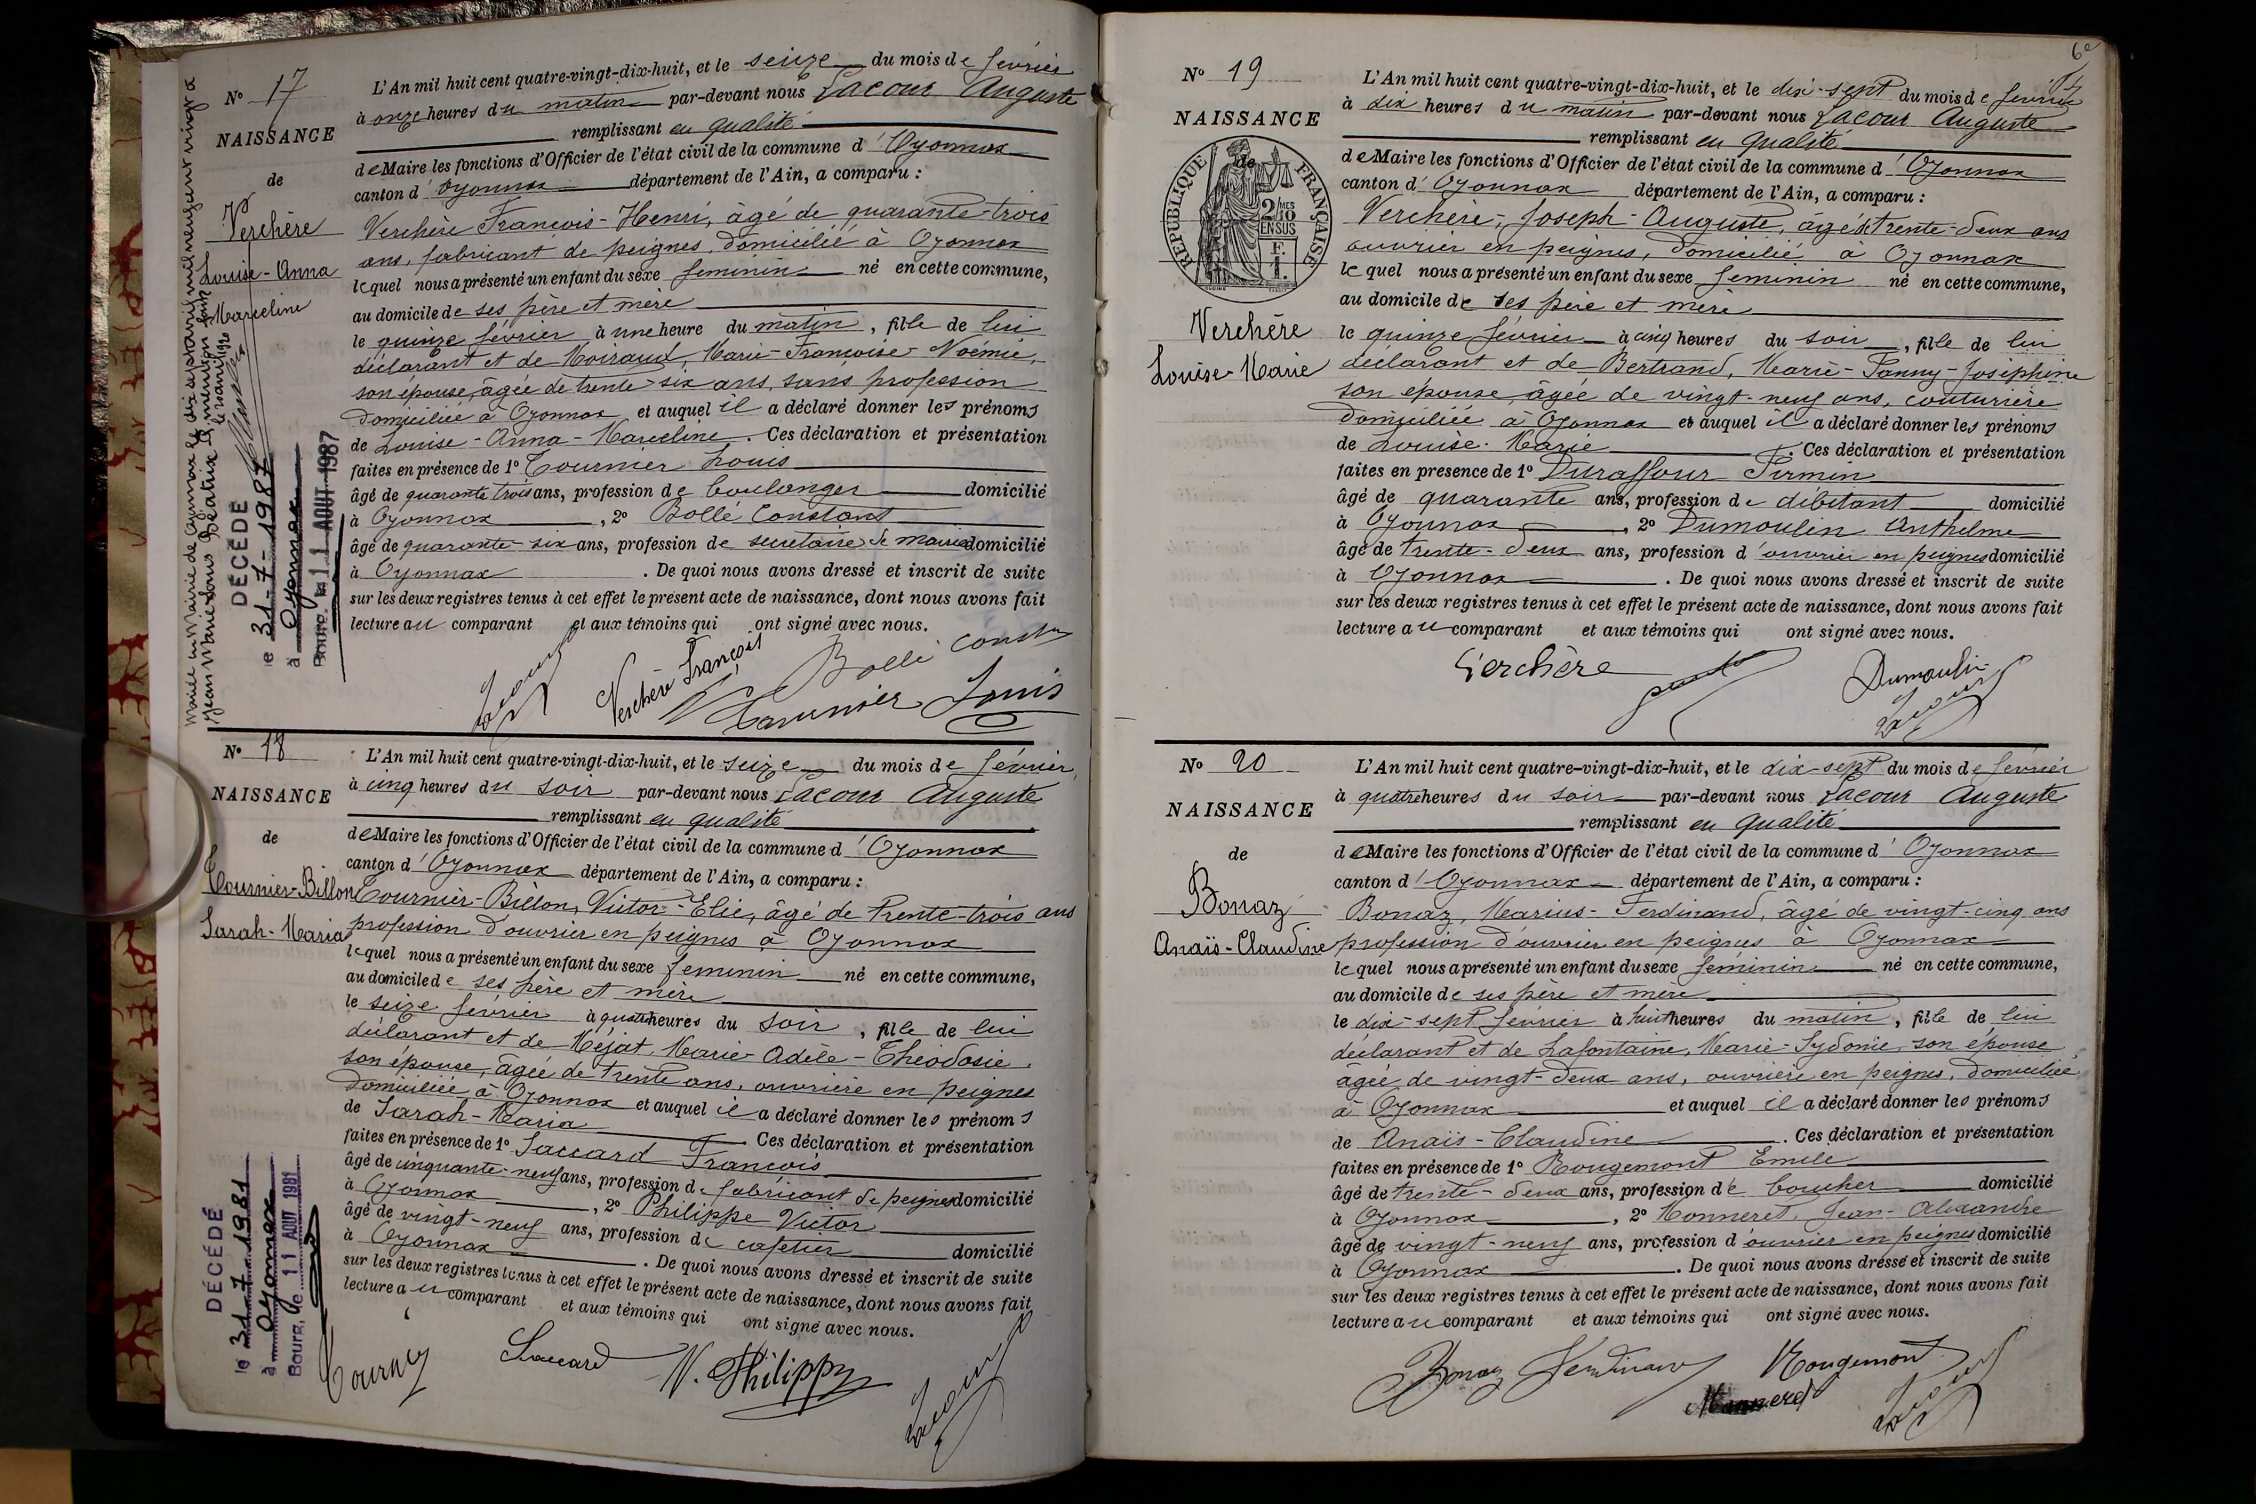 N° 17
NAISSANCE
de
Verchère
Louise-Anna
Marceline
Mariée en Mairie de Oyonnax le dix avril mil neuf cent vingt à
Jean Marie Louis Béatrix
mention faite
le 10 avril 1920
DÉCÉDÉ
le 31-7-1987
à Oyonnax
Bourg, le 11 AOUT 1987
L'An mil huit cent quatre-vingt-dix-huit, et le seize du mois de février
à onze heures du matin par-devant nous Lacour Auguste
remplissant en qualité
de Maire les fonctions d'Officier de l'état civil de la commune d'Oyonnax
canton d'Oyonnax département de l'Ain, a comparu :
Verchère François-Henri, âgé de quarante-trois
ans, fabricant de peignes, domicilié à Oyonnax
lequel nous a présenté un enfant du sexe feminin né en cette commune,
au domicile de ses père et mère
le quinze février à une heure du matin, fille de lui
déclarant et de Moiraud, Marie-Françoise-Noémie,
son épouse, âgée de trente-six ans, sans profession
domiciliée à Oyonnax et auquel il a déclaré donner les prénoms
de Louise-Anna-Marceline. Ces déclaration et présentation
faites en présence de 1° Tournier Louis
âgé de quarante trois ans, profession de boulanger domicilié
à Oyonnax, 2° Bollé Constant
âgé de quarante-six ans, profession de secrétaire de mairie domicilié
à Oyonnax. De quoi nous avons dressé et inscrit de suite
sur les deux registres tenus à cet effet le présent acte de naissance, dont nous avons fait
lecture au comparant et aux témoins qui ont signé avec nous.
Lacour Verchère François Bollé Const
Tournier Louis
N° 18
NAISSANCE
de
Tournier-Billon
Sarah-Maria
DÉCÉDÉ
le 31.7.1981
à Oyonnax
Bourg, le 11 AOUT 1981
L'An mil huit cent quatre-vingt-dix-huit, et le seize du mois de février
à cinq heures du soir par-devant nous Lacour Auguste
remplissant en qualité
de Maire les fonctions d'Officier de l'état civil de la commune d'Oyonnax
canton d'Oyonnax département de l'Ain, a comparu :
Tournier-Billon, Victor-Elie, âgé de trente-trois ans
profession d'ouvrier en peignes à Oyonnax
lequel nous a présenté un enfant du sexe feminin né en cette commune,
au domicile de ses père et mère
le seize février à quatre heures du soir, fille de lui
déclarant et de Méjat, Marie-Adèle-Théodosie,
son épouse, âgée de trente ans, ouvrière en peignes
domiciliée à Oyonnax et auquel il a déclaré donner les prénoms
de Sarah-Maria. Ces déclaration et présentation
faites en présence de 1° Jaccard François
âgé de cinquante-neuf ans, profession de fabricant de peignes domicilié
à Oyonnax, 2° Philippe Victor
âgé de vingt-neuf ans, profession de cafetier domicilié
à Oyonnax. De quoi nous avons dressé et inscrit de suite
sur les deux registres tenus à cet effet le présent acte de naissance, dont nous avons fait
lecture au comparant et aux témoins qui ont signé avec nous.
Jaccard V. Philippe Lacour
6e
N° 19
NAISSANCE
de
RÉPUBLIQUE FRANÇAISE
2/10 MES
EN SUS
F.
1.
Verchère
Louise-Marie
L'An mil huit cent quatre-vingt-dix-huit, et le dix-sept du mois de février
à dix heures du matin par-devant nous Lacour Auguste
remplissant en qualité
de Maire les fonctions d'Officier de l'état civil de la commune d'Oyonnax
canton d'Oyonnax département de l'Ain, a comparu :
Verchère, Joseph-Auguste, âgé de trente-deux ans
ouvrier en peignes, domicilié à Oyonnax
lequel nous a présenté un enfant du sexe feminin né en cette commune,
au domicile de ses père et mère
le quinze février à cinq heures du soir, fille de lui
déclarant et de Bertrand, Marie-Fanny-Joséphine
son épouse âgée de vingt-neuf ans, couturière
domiciliée à Oyonnax et auquel il a déclaré donner les prénoms
de Louise-Marie. Ces déclaration et présentation
faites en présence de 1° Duraffour Firmin
âgé de quarante ans, profession de débitant domicilié
à Oyonnax, 2° Dumoulin Anthelme
âgé de trente-deux ans, profession d'ouvrier en peignes domicilié
à Oyonnax. De quoi nous avons dressé et inscrit de suite
sur les deux registres tenus à cet effet le présent acte de naissance, dont nous avons fait
lecture au comparant et aux témoins qui ont signé avec nous.
Verchère Dumoulin
Lacour
N° 20
NAISSANCE
de
Bonaz
Anaïs-Claudine
L'An mil huit cent quatre-vingt-dix-huit, et le dix-sept du mois de février
à quatre heures du soir par-devant nous Lacour Auguste
remplissant en qualité
de Maire les fonctions d'Officier de l'état civil de la commune d'Oyonnax
canton d'Oyonnax département de l'Ain, a comparu :
Bonaz, Marius-Ferdinand, âgé de vingt-cinq ans
profession d'ouvrier en peignes à Oyonnax
lequel nous a présenté un enfant du sexe féminin né en cette commune,
au domicile de ses père et mère
le dix-sept février à huit heures du matin, fille de lui
déclarant et de Lafontaine, Marie-Sydonie, son épouse,
âgée de vingt-deux ans, ouvrière en peignes, domiciliée
à Oyonnax et auquel il a déclaré donner les prénoms
de Anaïs-Claudine. Ces déclaration et présentation
faites en présence de 1° Rougemont Emile
âgé de trente-deux ans, profession de boucher domicilié
à Oyonnax, 2° Monneret, Jean-Alexandre
âgé de vingt-neuf ans, profession d'ouvrier en peignes domicilié
à Oyonnax. De quoi nous avons dressé et inscrit de suite
sur les deux registres tenus à cet effet le présent acte de naissance, dont nous avons fait
lecture au comparant et aux témoins qui ont signé avec nous.
Bonaz Ferdinand Rougemont
Monneret Lacour